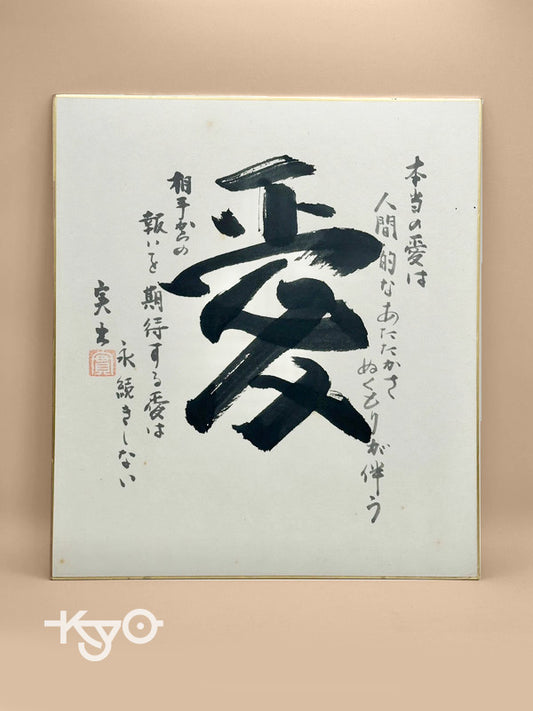 本当の愛は
人間的なあたたかさ
ぬくもりが伴う
愛
相手からの
報いを期待する愛は
永続きしない
実
Kyo